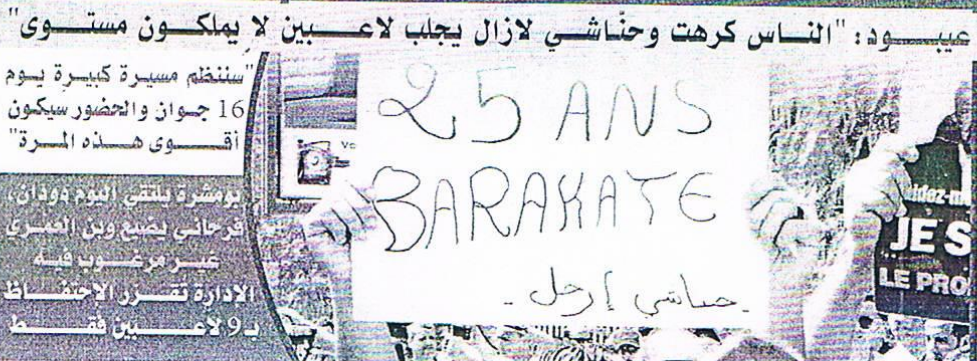 عيبود: "الناس كرهت وحنّاشي لازال يجلب لاعبين لا يملكون مستوى"
"سننظم مسيرة كبيرة يوم
16 جوان والحضور سيكون
أقوى هذه المرة"
بومشرة يلتقي اليوم وودان،
فرحاني يضيع وبن العمري
غير مرغوب فيه
الإدارة تقرر الاحتفاظ
بـ9 لاعبين فقط
25 ANS
BARAKATE
حناشي إرحل.
JE S
LE PRO